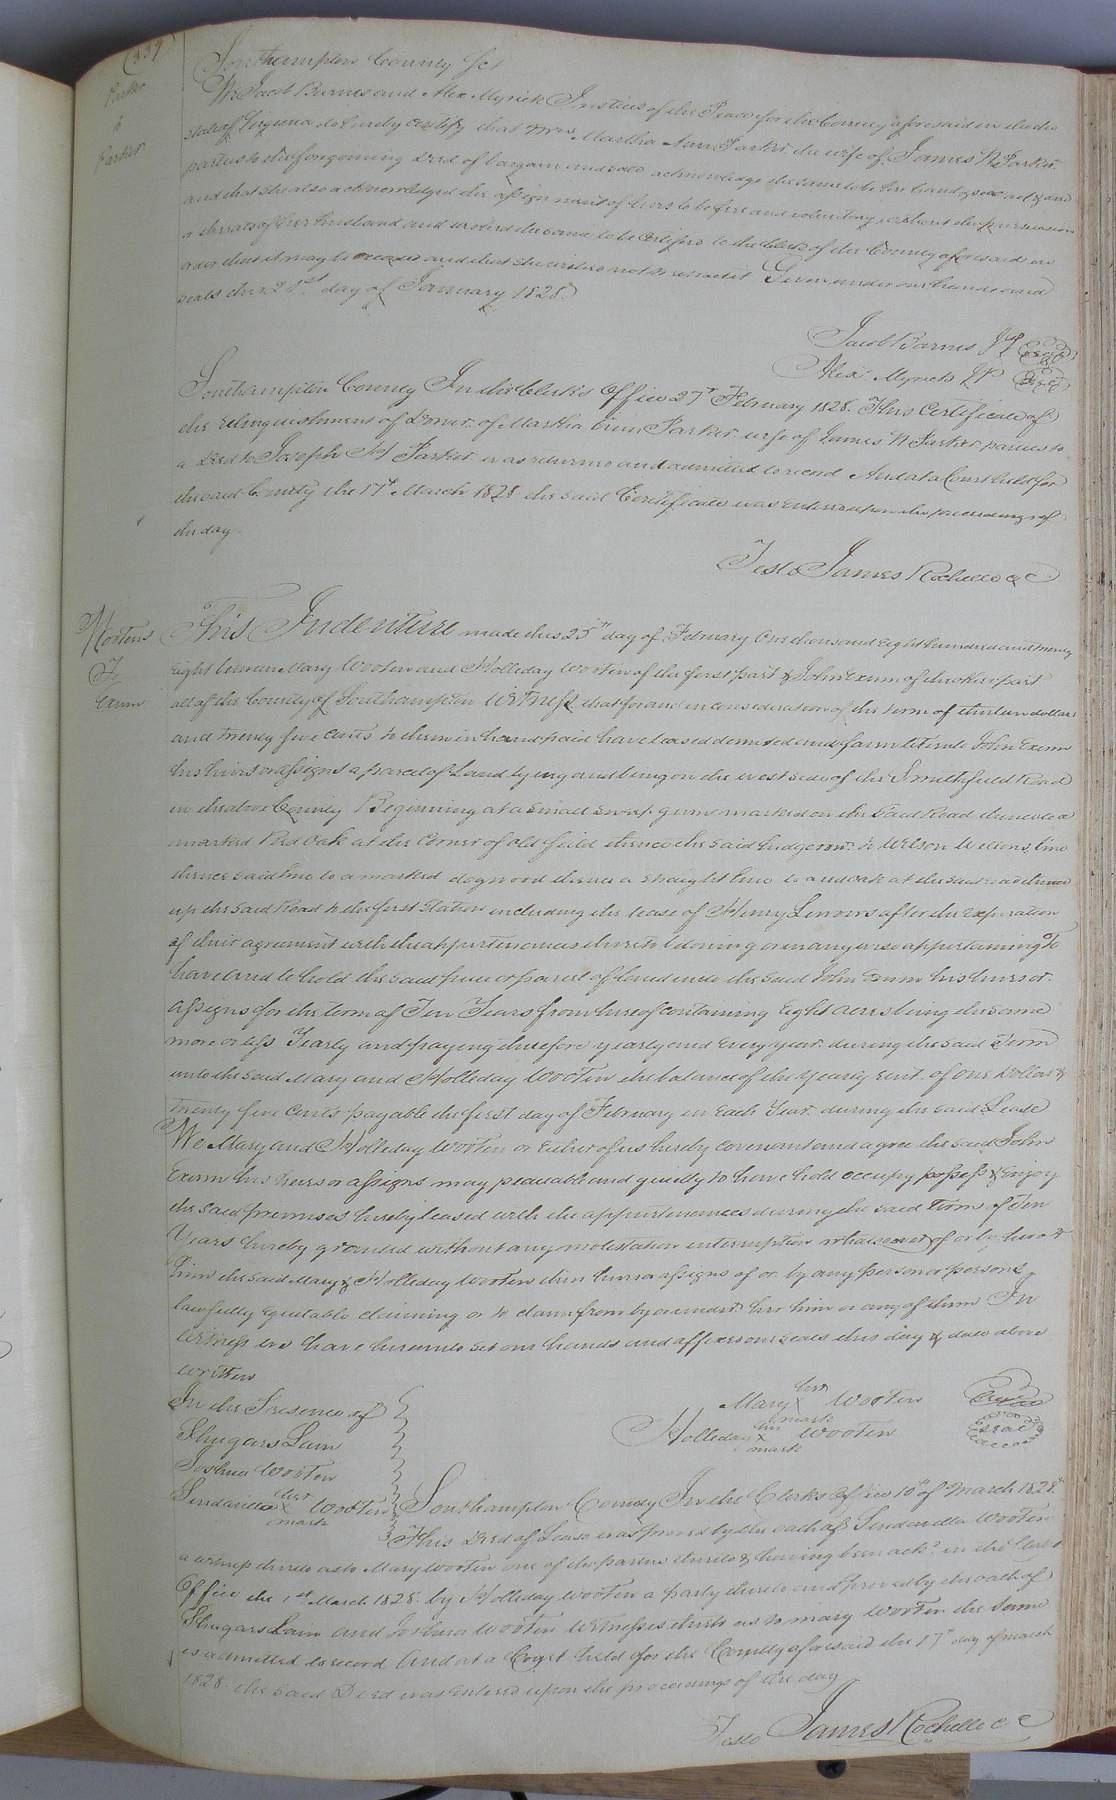 (339)
Parker
to
Parker
Southampton County Sct
We Jacob Barnes and Alex Myrick Justices of the Peace for the County aforesaid in the
State of Virginia do hereby certify that Mrs Martha Ann Parker the wife of James W Parker
parties to the foregoing deed of bargain and sale acknowledge the same to be her hand & seal act &
and that she also acknowledged the assignment of hers to be free and voluntary without the persuasion
or threats of her husband and wished the same to be certified to the Clerk of the County aforesaid in
order that it may be and that she wishes not to retract it Given under our hands and
seals this 21st day of January 1828.
Jacob Barnes JP Seal
Alex Myrick JP Seal
Southampton County In the Clerk's Office 27th February 1828. This Certificate of
the relinquishment of Dower of Martha Ann Parker wife of James W Parker parties to
a deed to Joseph H Parker was returned and admitted to record And at a Court held for
the said County the 17th March 1828 the said Certificate was entered upon the proceedings of
the day.
Teste James Rochelle C C
Wootens
To
Exum
This Indenture made this 25th day of February One thousand Eight hundred and twenty
Eight between Mary Wooten and Holleday Wooten of the first part & John Exum of the other part
all of the County of Southampton Witness that for and in consideration of the term of thirteen dollars
and twenty five cents to them in hand paid have leased demised and farm let unto John Exum
his heirs or assigns a parcel of Land lying and being on the west side of the Smithfield Road
in the above County Beginning at a small Swap. gum marked on the Said Road thence to a
marked Red Oak at the Corner of old field thence the said hedgerow to Wilson line
thence said line to a marked dogwood thence a straight line to a red oak at the said road thence
up the said Road to the first Station including the lease of Henry after the expiration
of their agreement with the appurtenances thereto belonging or in any wise appertaining To
have and to hold the said piece or parcel of land unto the said John Exum his heirs or
assigns for the term of Ten Years from hereof containing Eight acres being the same
more or less Yearly and paying therefore yearly and every year during the said Term
unto the said Mary and Holleday Wooten the balance of the yearly rent of one Dollar &
twenty five Cents payable the first day of February in Each Year during the said Lease
We Mary and Holleday Wooten or Either of us hereby covenant and agree the said John
Exum his heirs or assigns may peaceable and quietly to have hold occupy possess & Enjoy
the said premises hereby leased with the appurtenances during the said term of Ten
Years hereby granted without any molestation interruption whatsoever of or by her or
him the said Mary & Holleday Wooten their heirs or assigns of or by any person or persons
lawfully Equitable claiming or to claim from by or under her him or any of them In
Witness we have hereunto set our hands and affixed our seals this day & date above
written
In the Presence of
Mary her X mark Wooten Seal
Shugars Lain
Holleday his X mark Wooten Seal
Joshua Wooten
Sindarilla her X mark Wooten
Southampton County In the Clerks Office 10th of March 1828
This Deed of Lease was proved by the oath of Sindarilla Wooten
a witness thereto as to Mary Wooten one of the parties thereto & having been ackd in the Clerk's
Office the 1st March 1828. by Holleday Wooten a party thereto and proved by the oath of
Shugars Lain and Joshua Wooten Witnesses thereto as to Mary Wooten the same
is admitted to record And at a Court held for the County aforesaid the 17th day of March
1828. the said Deed was entered upon the proceedings of the day
Teste James Rochelle C C